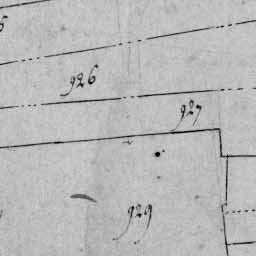 926
927
929